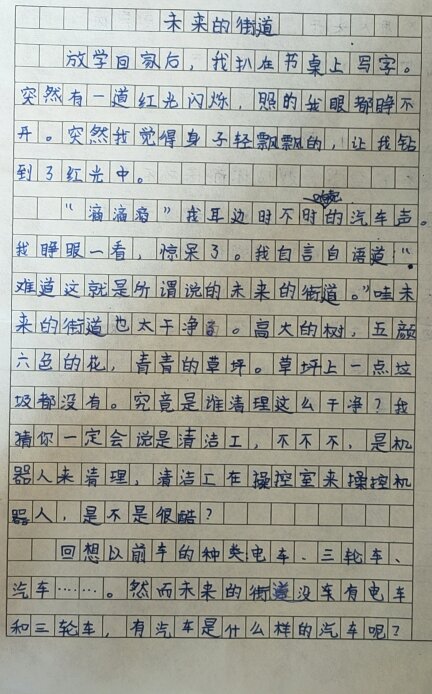 未来的街道
放学回家后，我扒在书桌上写字。
突然有一道红光闪烁，照的我眼都睁不
开。突然我觉得身子轻飘飘的，让我钻
到了红光中。
“滴滴滴”我耳边时不时的汽车声。
我睁眼一看，惊呆了。我自言自语道：“
难道这就是所谓说的未来的街道。”哇未
来的街道也太干净了。高大的树，五颜
六色的花，青青的草坪。草坪上一点垃
圾都没有。究竟是谁清理这么干净？我
猜你一定会说是清洁工，不不不，是机
器人来清理，清洁工在操控室来操控机
器人，是不是很酷？
回想以前车的种类：电车、三轮车、
汽车……。然而未来的街道没车有电车
和三轮车，有汽车是什么样的汽车呢？